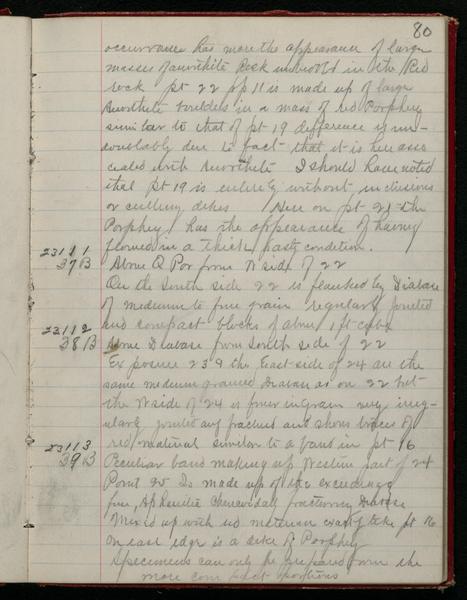 80
occurrance has more the appearance of large
masses of anorthite rock imbedded in the Red
rock pt 22 pp 11 is made up of large
Anorthite boulders in a mass of red Porphry
similar to that of pt 19 difference is un-
doubtably due to fact that it is here asso
ciated with Anorthite I should have noted
that pt 19 is entirely without inclusions
or cutting dikes Here on pt 21 the
Porphry has the appearance of having
flowed in a thick pasty condition.
23111
37B Above Q Por from N side of 22
On the South side 22 is flanked by Diabase
of medium to fine grain regularly jointed
and compact blocks of about 1 ft cube
23112
38B Above Diabase from South side of 22
Exposure 23 & the East side of 24 are the
same medium grained Diabase as on 22 but
the W side of 24 is finer in grain very irreg-
ularly jointed and fractured and shows traces of
red material similar to a band in pt 16
23113
39B Peculiar band making up Western part of 24
Point 25 Is made up of the exceedingly
fine, Aphanitic fracturing Diabase
Mixed up with red material exactly like pt 16
on east edge is a dike Q Porphry
Specimens can only be prepared from the
more compact portions